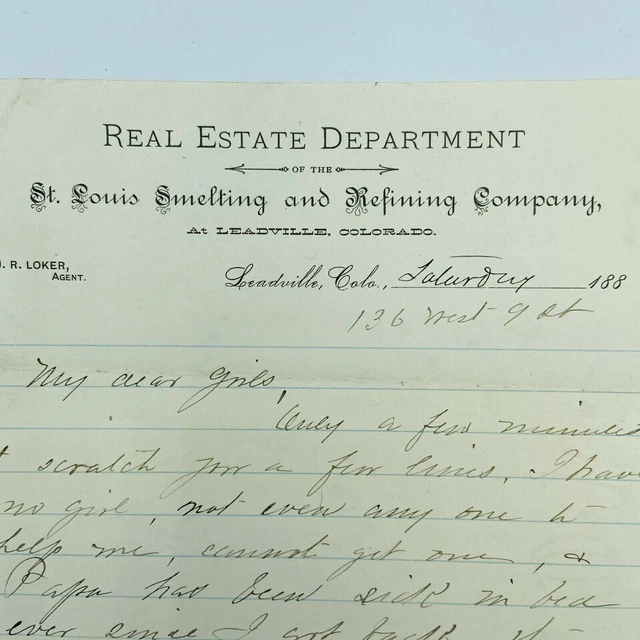 REAL ESTATE DEPARTMENT
OF THE
St. Louis Smelting and Refining Company,
At LEADVILLE, COLORADO.
J. R. LOKER,
AGENT.
Leadville, Colo., Saturday 188
136 West 9 St
My dear Girls,
Only a few minutes
scratch you a few lines. I have
no girl, not even any one to
help me, cannot get one, &
Papa has been sick in bed
ever since I got back